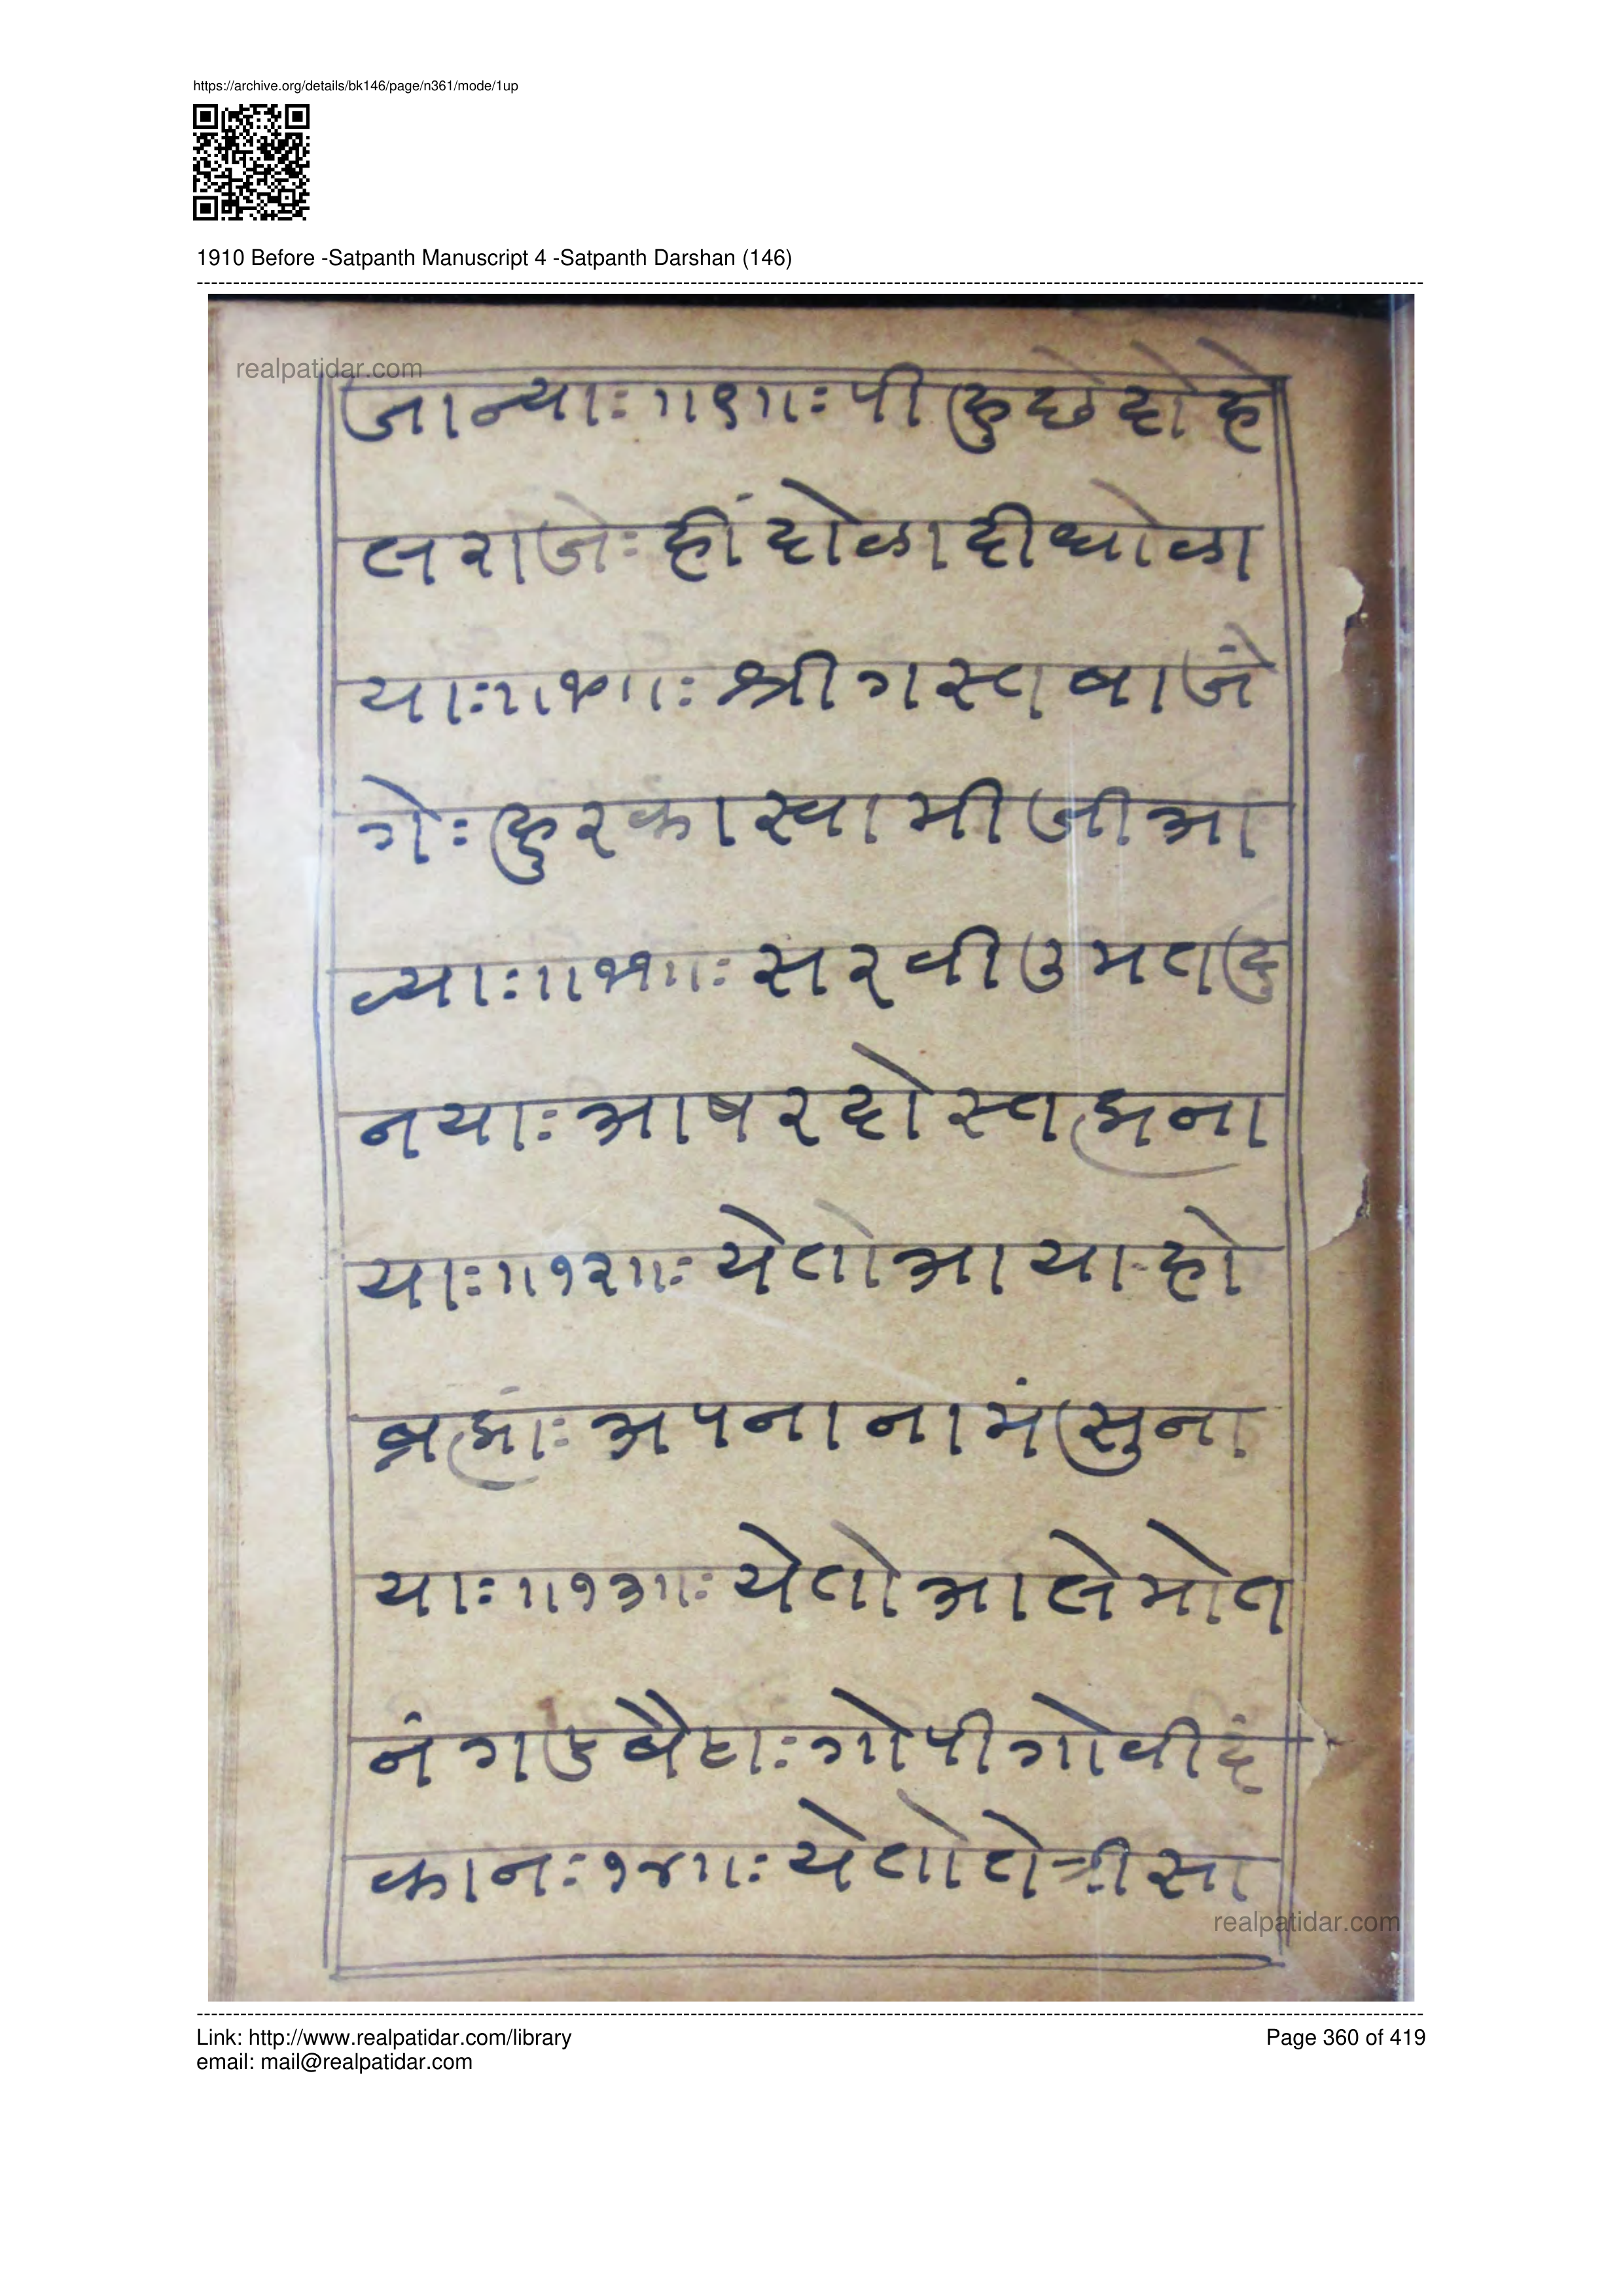 https://archive.org/details/bk146/page/n361/mode/1up
1910 Before -Satpanth Manuscript 4 -Satpanth Darshan (146)
realpatidar.com
जान्याः॥९॥ः पी हु छे दो हे
ल राजेः हीं दोळा दी धोळा
याः॥१०॥ः श्री गस्त बाजं
गेः हु र का स्वामी जी आ
व्याः॥११॥ः सरवी उमत हु
नयाः आषर दोस्त ह्मना
याः॥१२॥ः येतो आया हो
ब्रह्मांः अपना नामं सुना
याः॥१३॥ः येतो आले मोत
नंग उ बैठाः गोपी गोवीदं
कानः१४॥ः येतो तो श्री सा
realpatidar.com
Link: http://www.realpatidar.com/library
Page 360 of 419
email: mail@realpatidar.com